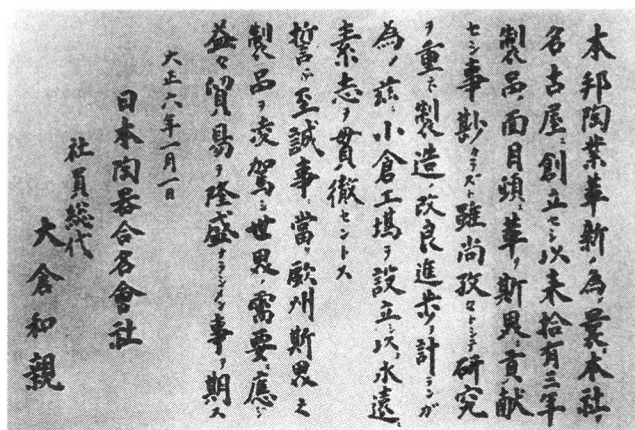 本邦陶業革新ノ為ノ曩ニ本社ヲ
名古屋ニ創立セシ以来拾有三年
製品ノ面目頭ニ革リ斯界ニ貢献
セシ事尠カラズト雖尚孜々トシテ研究
ヲ重ネ製造ノ改良進歩ヲ計ランガ
為ノ茲ニ小倉工場ヲ設立シ以テ永遠ニ
素志ヲ貫徹セントス
誓テ至誠事ニ當リ歐州斯界之
製品ヲ凌駕シ世界ノ需要ニ應ジ
益々貿易ヲ隆盛ナラシメン事ヲ期ス
大正六年一月一日
日本陶器合名會社
社員総代
大倉和親